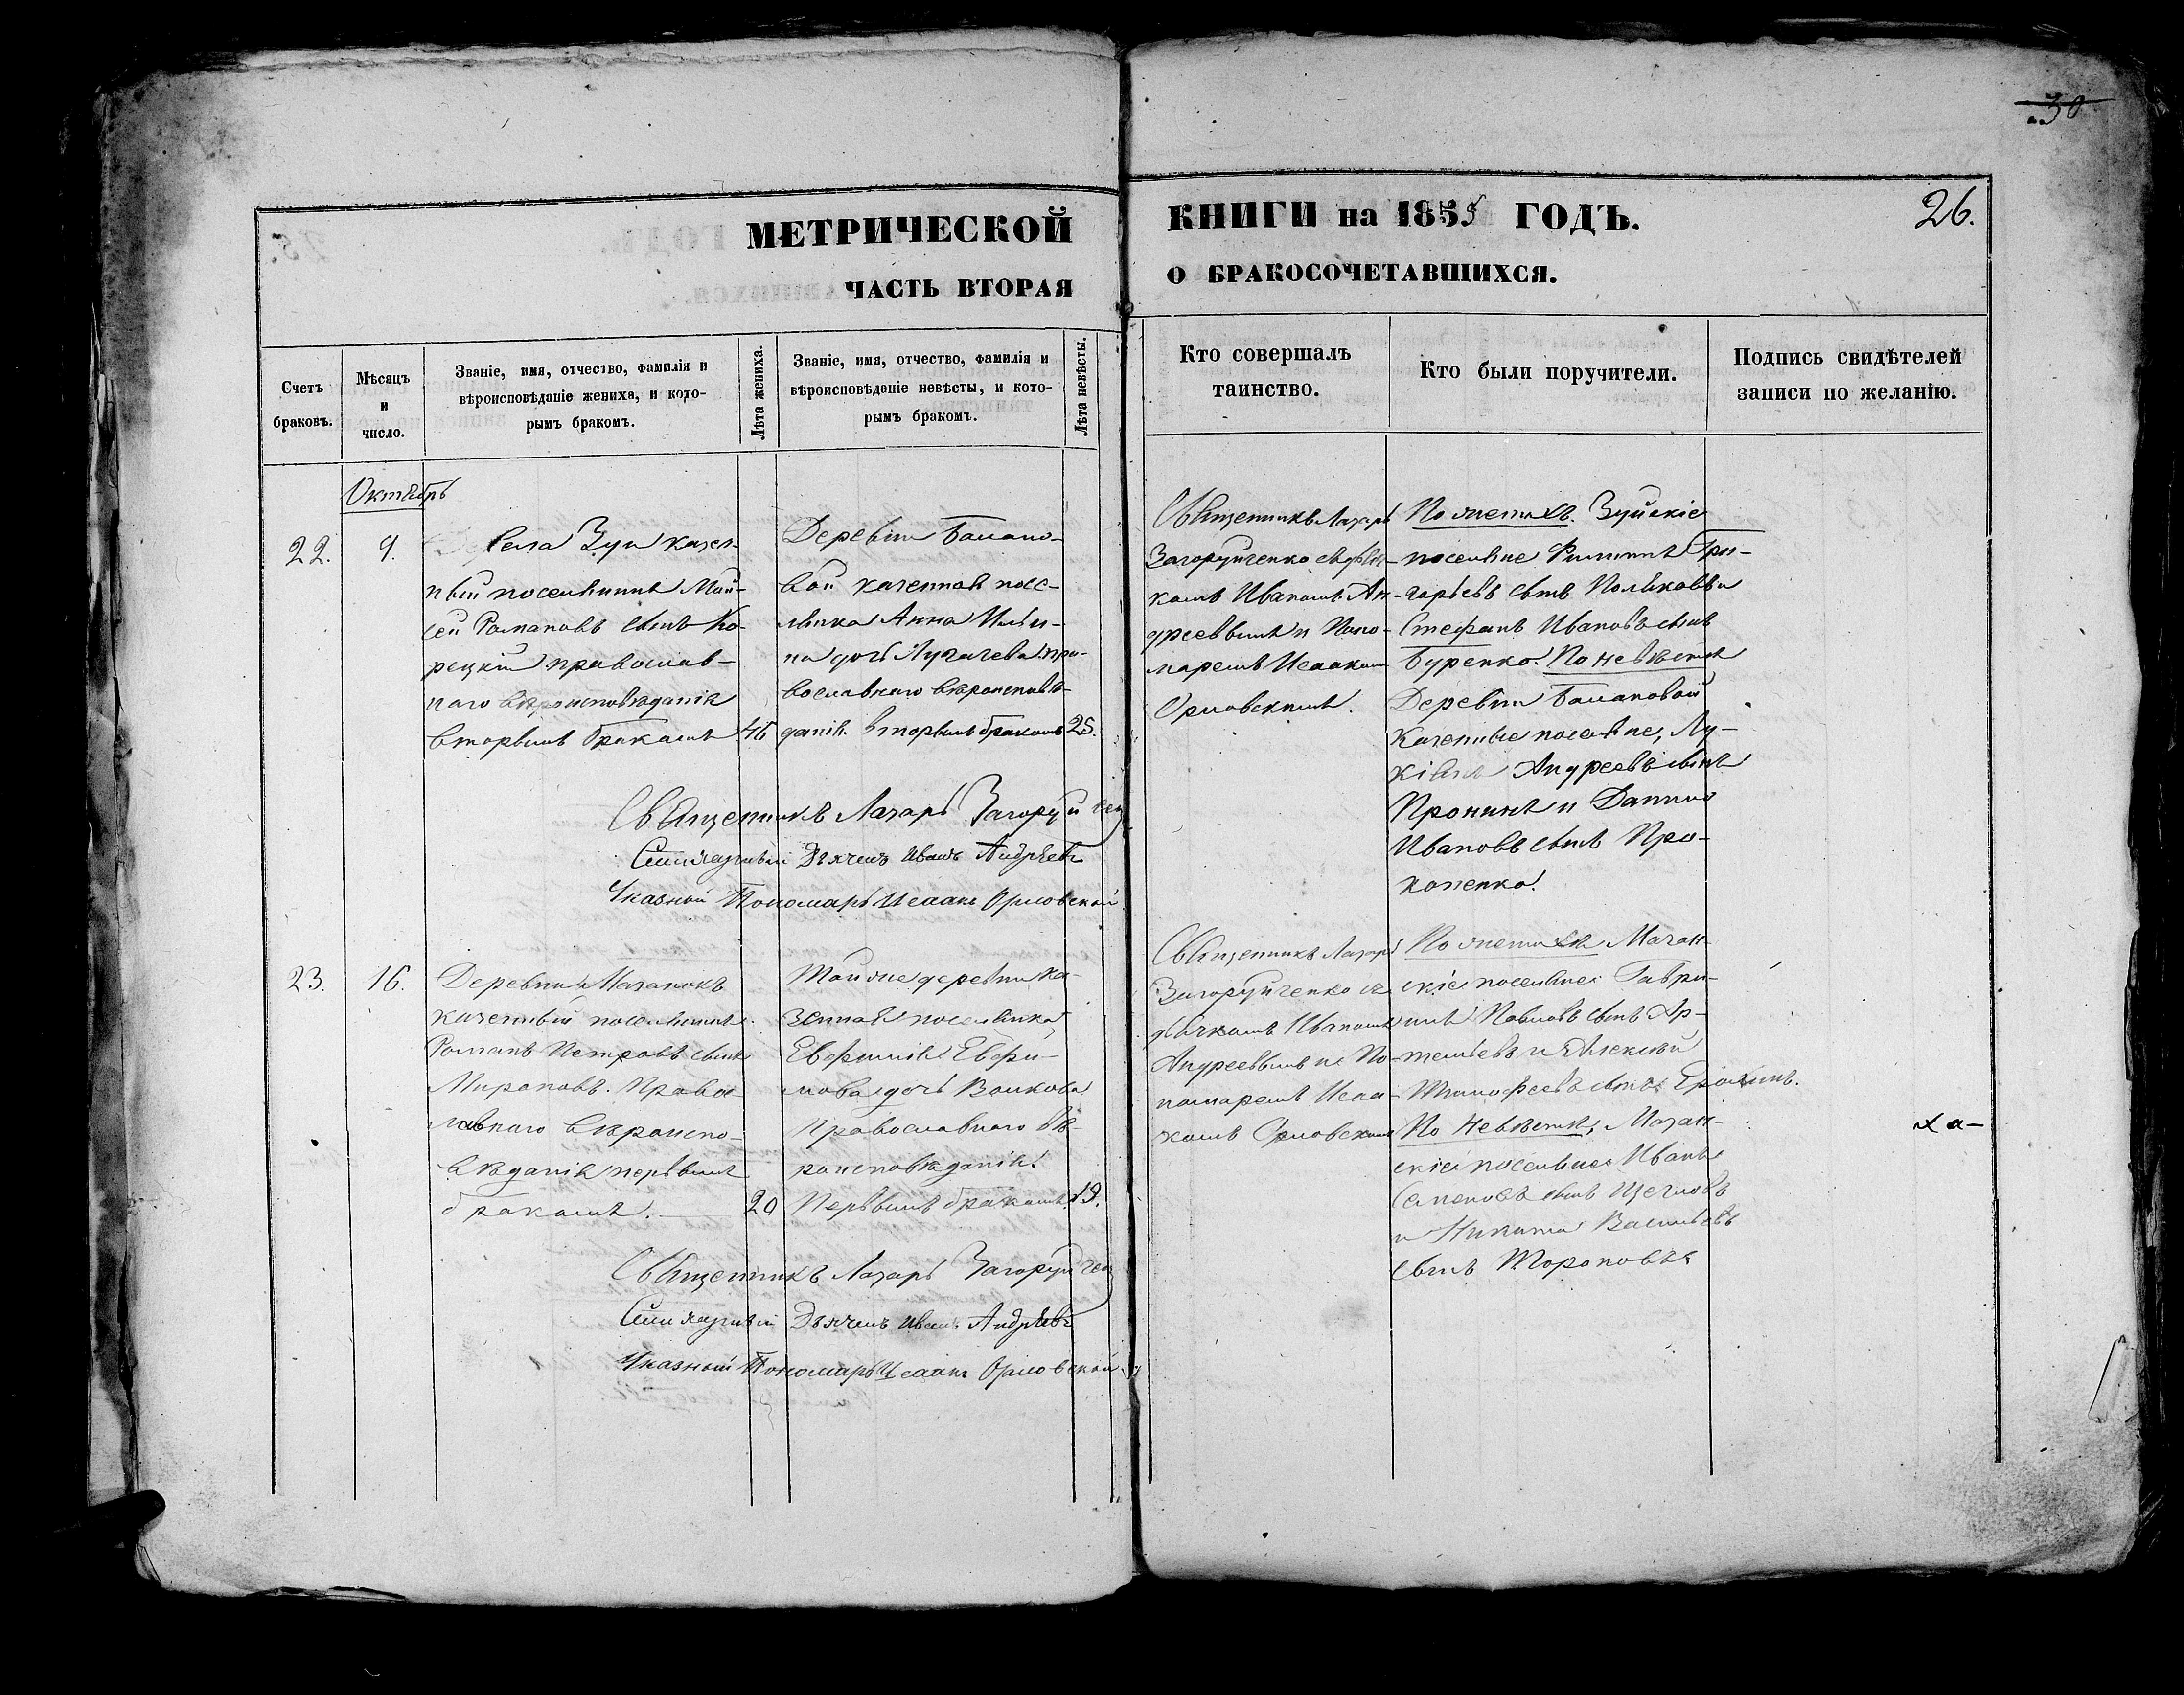 30
МЕТРИЧЕСКОЙ
ЧАСТЬ ВТОРАЯ
КНИГИ на 1855 ГОДЪ.
О БРАКОСОЧЕТАВШИХСЯ.
26.
Счетъ
браковъ.
Мѣсяцъ
и
число.
Званіе, имя, отчество, фамилія и
вѣроисповѣданіе жениха, и кото-
рымъ бракомъ.
Лѣта жениха.
Званіе, имя, отчество, фамилія и
вѣроисповѣданіе невѣсты, и кото-
рымъ бракомъ.
Лѣта невѣсты.
Кто совершалъ
таинство.
Кто были поручители.
Подпись свидѣтелей
записи по желанію.
Октябрь
22.
9.
Села Зуи казен-
ный поселянинъ Мой-
сей Романовъ сынъ Ко-
рецкій православ-
наго вѣроисповѣданія
вторымъ бракомъ
46
Деревни Балано-
вой казенная посе-
лянка Анна Ильи-
на дочь Лугачева пра-
вославнаго вѣроисповѣ-
данія. вторымъ бракомъ
25.
Священникъ Лазарь
Загоруйченко съ дьяч-
комъ Иваномъ Ан-
дреевымъ и Поно-
маремъ Исаакомъ
Орловскимъ.
По женихѣ. Зуйскіе
поселяне Филиппъ Гри-
горьевъ сынъ Поляковъ и
Стефанъ Ивановъ сынъ
Буренко. По невѣстѣ
Деревни Балановой
Казенные поселяне, Лу-
кіянъ Андреевъ сынъ
Пронинъ и Даниил
Ивановъ сынъ Про-
копенко.
Священникъ Лазарь Загоруйчен
Дьячекъ Иванъ Андреевъ
Указной Пономарь Исаакъ Орловской
23.
16.
Деревни Мазанокъ
казенный поселянинъ
Романъ Петровъ сынъ
Мироновъ. Правос-
лавнаго вѣроиспо-
вѣданія первымъ
бракомъ.
20
Той же деревни ка-
зенная поселянка
Евфимія Евфи-
мова дочь Волкова
Православнаго вѣ-
роисповѣданія.
Первымъ бракомъ.
19.
Священникъ Лазарь
Загоруйченко съ
дьячкомъ Иваномъ
Андреевымъ и По-
номаремъ Исаа-
комъ Орловскимъ
По женихѣ Мазан-
скіе поселяне Гаври-
илъ Павловъ сынъ Ар-
темьевъ и Алексѣй
Тимофеевъ сынъ Ерохинъ.
По Невѣстѣ, Мазан-
скіе поселяне Иванъ
Семеновъ сынъ Щегловъ
и Никита Васильевъ
сынъ Тороповъ.
ха-
Священникъ Лазарь Загоруйчен
Дьячекъ Иванъ Андреевъ
Указной Пономарь Исаакъ Орловской